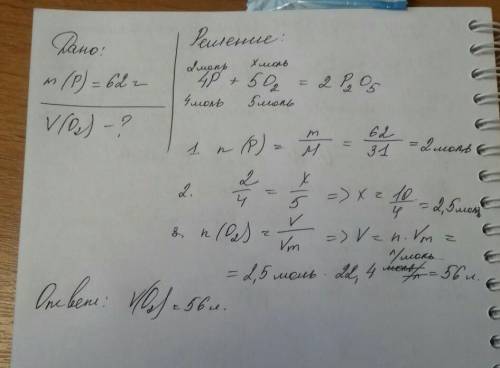 Дано:
m(P) = 62 г
V(O₂) - ?
Решение:
2 моль x моль
4P + 5O₂ = 2 P₂O₅
4 моль 5 моль
1. n(P) = m/M = 62/31 = 2 моль
2. 2/4 = x/5 => x = 10/4 = 2,5 моль
3. n(O₂) = V/Vm => V = n · Vm =
л/моль
= 2,5 моль · 22,4 = 56 л.
Ответ: V(O₂) = 56 л.